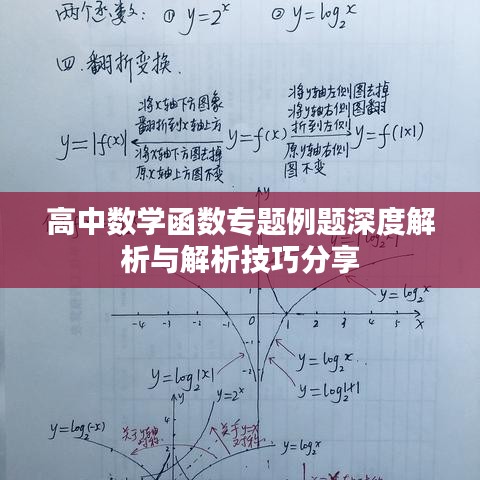 两个函数: ① y=2^x ② y=log₂x
四.翻折变换.
将x轴下方图象
翻折到x轴上方
y=|f(x)|
将x轴下方图去掉
原x轴上方图不变
y=f(x)
将y轴左侧图去掉
将y轴右侧图翻
折到左侧
原y轴右侧
图不变
y=f(|x|)
高中数学函数专题例题深度解
析与解析技巧分享
y
y=log₂x
-4 -3 -2 -1 0 1 2 3 4 5 x
y=log₂|x|
y=log₂x
y=log₂|x|
y=2^x
y
y=log₂(-x)
关于y轴
对称
关于y=x
对称
y=log₂x